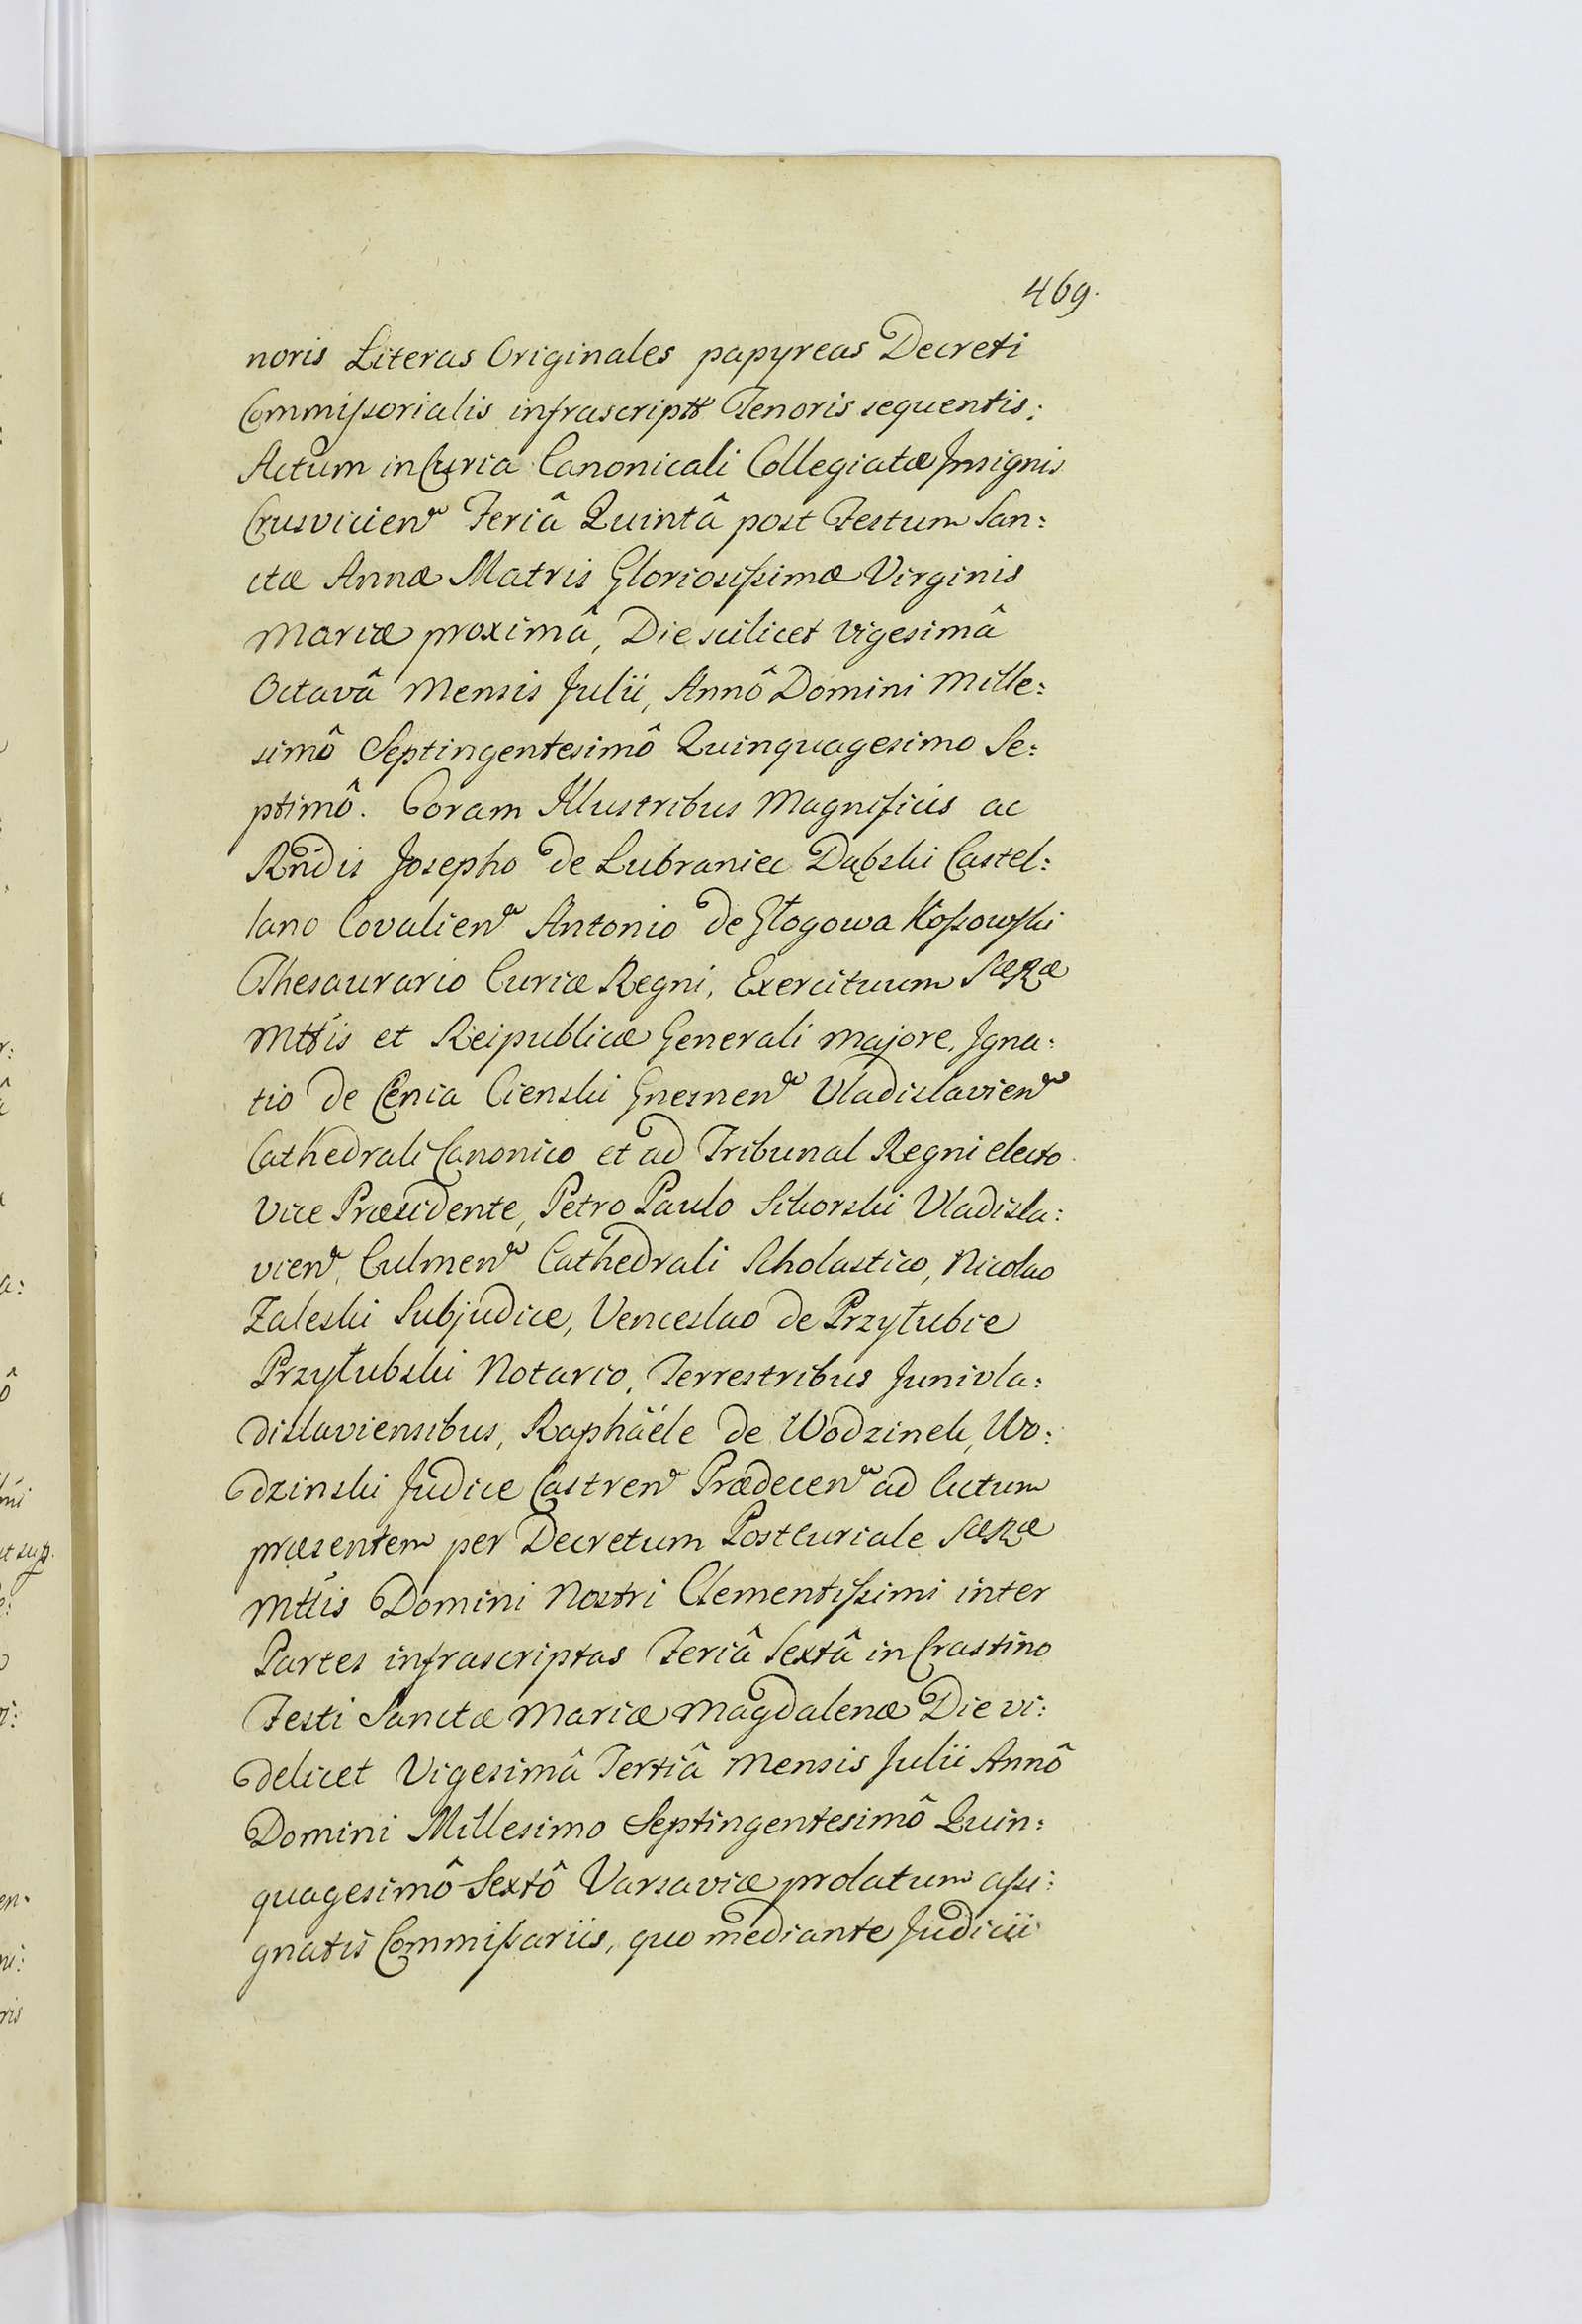 469.
noris Literas Originales papyreas Decreti
Commissorialis infrascriptt Tenoris sequentis:
Actum in Curia Canonicali Collegiatæ Insignis
Crusvicien Feriâ Quintâ post Festum San:
ctæ Annæ Matris Gloriosissimæ Virginis
Mariæ proximâ, Die scilicet Vigesimâ
Octavâ Mensis Julii, Annô Domini Mille:
simô Septingentesimô Quinquagesimo Se:
ptimô. Coram Illustribus Magnificis ac
Rndis Josepho de Lubraniec Dąbski Castel:
lano Covalien Antonio de Głogowa Kossowski
Thesaurario Curiæ Regni, Exercituum SæRæ
Mttis et Reipublicæ Generali Majore, Igna:
tio de Cenia Cienski Gnesnen Vladislavien
Cathedrali Canonico et ad Tribunal Regni electo
Vice Præsidente, Petro Paulo Sikorski Vladisla:
vien, Culmen Cathedrali Scholastico, Nicolao
Zaleski Subjudice, Venceslao de Przyłubie
Przyłubski Notario, Terrestribus Junivla:
dislaviensibus, Raphaële de Wodzinek, Wo:
dzinski Judice Castren Prædecen ad Actum
præsentem per Decretum Postcuriale SæRæ
Mttis Domini Nostri Clementissimi inter
Partes infrascriptas Feriâ Sextâ in Crastino
Festi Sanctæ Mariæ Magdalenæ Die vi:
delicet Vigesimâ Tertiâ Mensis Julii Annô
Domini Millesimo Septingentesimô Quin:
quagesimô Sextô Varsaviæ prolatum assi:
gnatis Commissariis, quo mediante Judicii